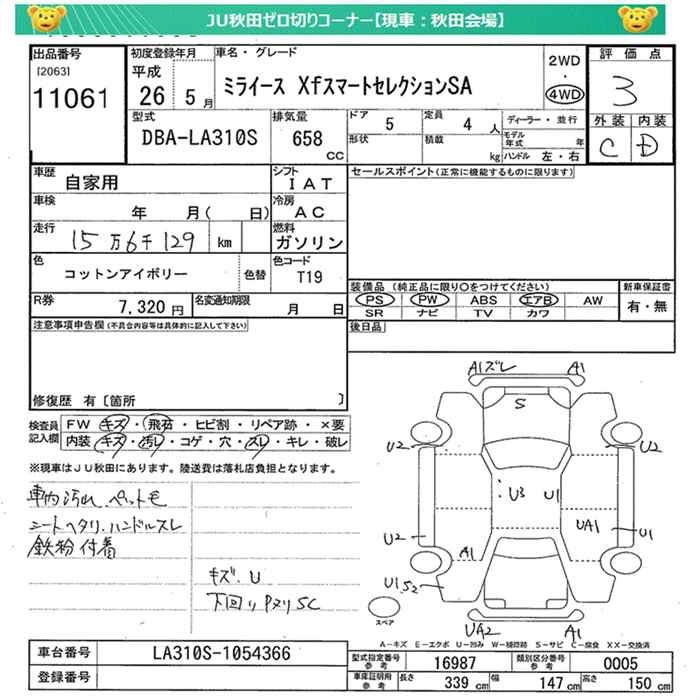 JU秋田ゼロ切りコーナー【現車：秋田会場】
出品番号
[2063]
11061
初度登録年月
平成
26 5月
車名・グレード
ミライース XfスマートセレクションSA
2WD
・
4WD
評価点
3
外装 内装
C D
型式
DBA-LA310S
排気量
658
CC
ドア
5
定員
4 人
形状
積載
kg
ディーラー・並行
モデル年式 年
ハンドル 左・右
車歴
自家用
シフト
IAT
車検
年 月( 日)
冷房
AC
走行
15万6千129 km
燃料
ガソリン
色
コットンアイボリー
色替
色コード
T19
R券
7,320 円
名変通知期限
月 日
セールスポイント(正常に機能するものに限ります)
装備品 (純正品に限り○をつけてください)
PS PW ABS エアB AW
SR ナビ TV カワ
新車保証書
有・無
後日品
注意事項申告欄(不具合内容等は具体的に記入して下さい)
修復歴 有〔箇所 〕
検査員記入欄
FW キズ・飛石・ヒビ割・リペア跡・×要
内装 キズ・汚レ・コゲ・穴・スレ・キレ・破レ
※現車はJU秋田にあります。陸送費は落札店負担となります。
車内汚れ、ペット毛
シートヘタリ、ハンドルスレ
鉄粉付着
キズ、U
下回りPヌリSC
A1ズレ A1
S
U2 U2
U3 U1
U2 UA1 U1
A1
U1 S2
スペア
UA2 A1
A-キズ E-エクボ U-凹み W-補修跡 S-サビ C-腐食 XX-交換済
車台番号
LA310S-1054366
登録番号
型式指定番号
参考
16987
類別区分番号
参考
0005
車庫証明用
参考
長さ 339 cm
幅 147 cm
高さ 150 cm